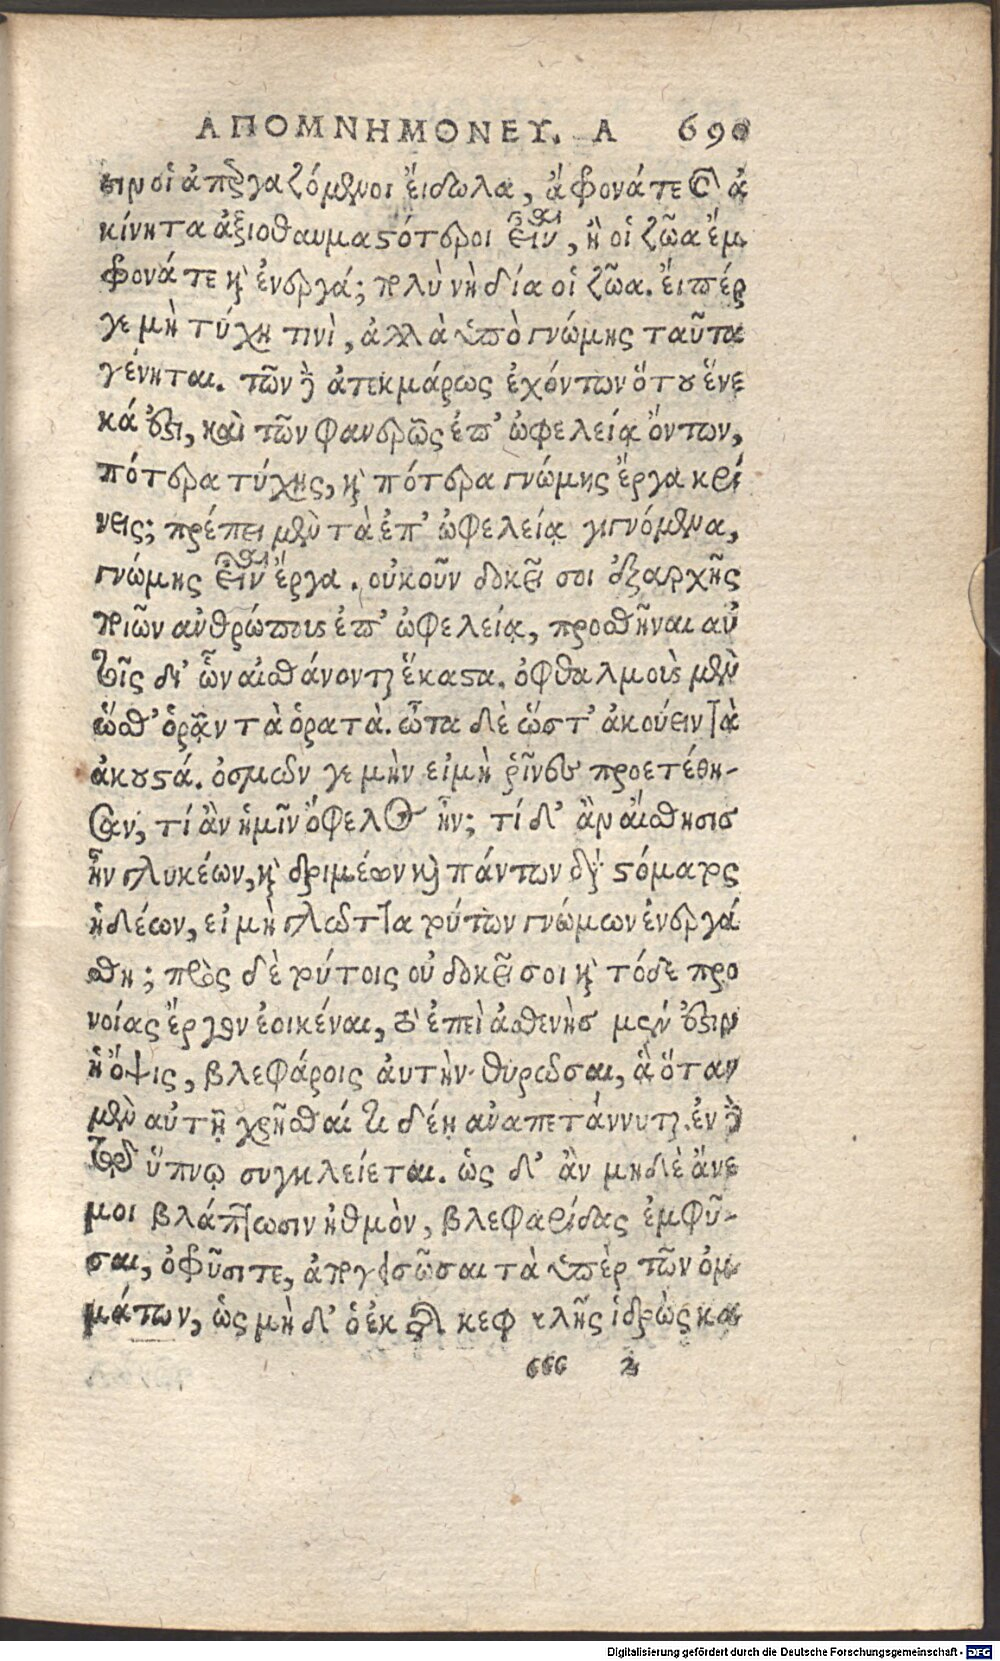 ΑΠΟΜΝΗΜΟΝΕΥ. Α 690
σιν οἱ ἀπεργαζόμενοι ἔιδωλα, ἄφρονά τε καὶ ἀ
κίνητα ἀξιοθαυμαστότεροι εἶναι, ἢ οἱ ζῶα ἔμ
φρονά τε καὶ ἐνεργά; πολὺ νὴ δία οἱ ζῶα. ἔιπέρ
γε μὴ τύχῃ τινὶ, ἀλλὰ ὑπὸ γνώμης ταῦτα
γένηται. τῶν δὲ ἀτεκμάρτως ἐχόντων ὅτου ἕνε
κά ἐστι, καὶ τῶν φανερῶς ἐπ' ὠφελείᾳ ὄντων,
πότερα τύχης, καὶ πότερα γνώμης ἔργα κρί
νεις; πρέπει μὲν τὰ ἐπ' ὠφελείᾳ γιγνόμενα,
γνώμης εἶναι ἔργα. οὐκοῦν δοκεῖ σοι ὁ ἐξαρχῆς
ποιῶν ἀνθρώπους ἐπ' ὠφελείᾳ, προσθῆναι αὐ
τοῖς δι' ὧν αἰσθάνονται ἕκαστα. ὀφθαλμοὺς μὲν
ὥσθ' ὁρᾷν τὰ ὁρατὰ. ὦτα δὲ ὥστ' ἀκούειν τὰ
ἀκουστά. ὀσμῶν γε μὴν εἰ μὴ ῥῖνες προετέθη-
σαν, τί ἂν ἡμῖν ὄφελος ἦν; τί δ' ἂν αἴσθησις
ἦν γλυκέων, καὶ δριμέων καὶ πάντων διὰ στόματος
ἡδέων, εἰ μὴ γλῶττα τούτων γνώμων ἐνεργά
σθη; πρὸς δὲ τούτοις οὐ δοκεῖ σοι καὶ τόδε προ
νοίας ἔργον ἐοικέναι, τὸ ἐπεὶ ἀσθενὴς μέν ἐστιν
ἡ ὄψις, βλεφάροις ἀυτὴν θυρῶσαι, ἃ ὅταν
μὲν αὐτῇ χρῆσθαί τι δέῃ ἀναπετάννυται. ἐν δὲ
τῷ ὕπνῳ συγκλείεται. ὡς δ' ἂν μηδὲ ἄνε
μοι βλάπτωσιν ἠθμὸν, βλεφαρίδας ἐμφῦ-
σαι, ὀφρῦσί τε, ἀπογεισῶσαι τὰ ὑπὲρ τῶν ὀμ
μάτων, ὡς μὴ δ' ὁ ἐκ τῆς κεφαλῆς ἱδρὼς κα
ςςς 2
Digitalisierung gefördert durch die Deutsche Forschungsgemeinschaft - DFG